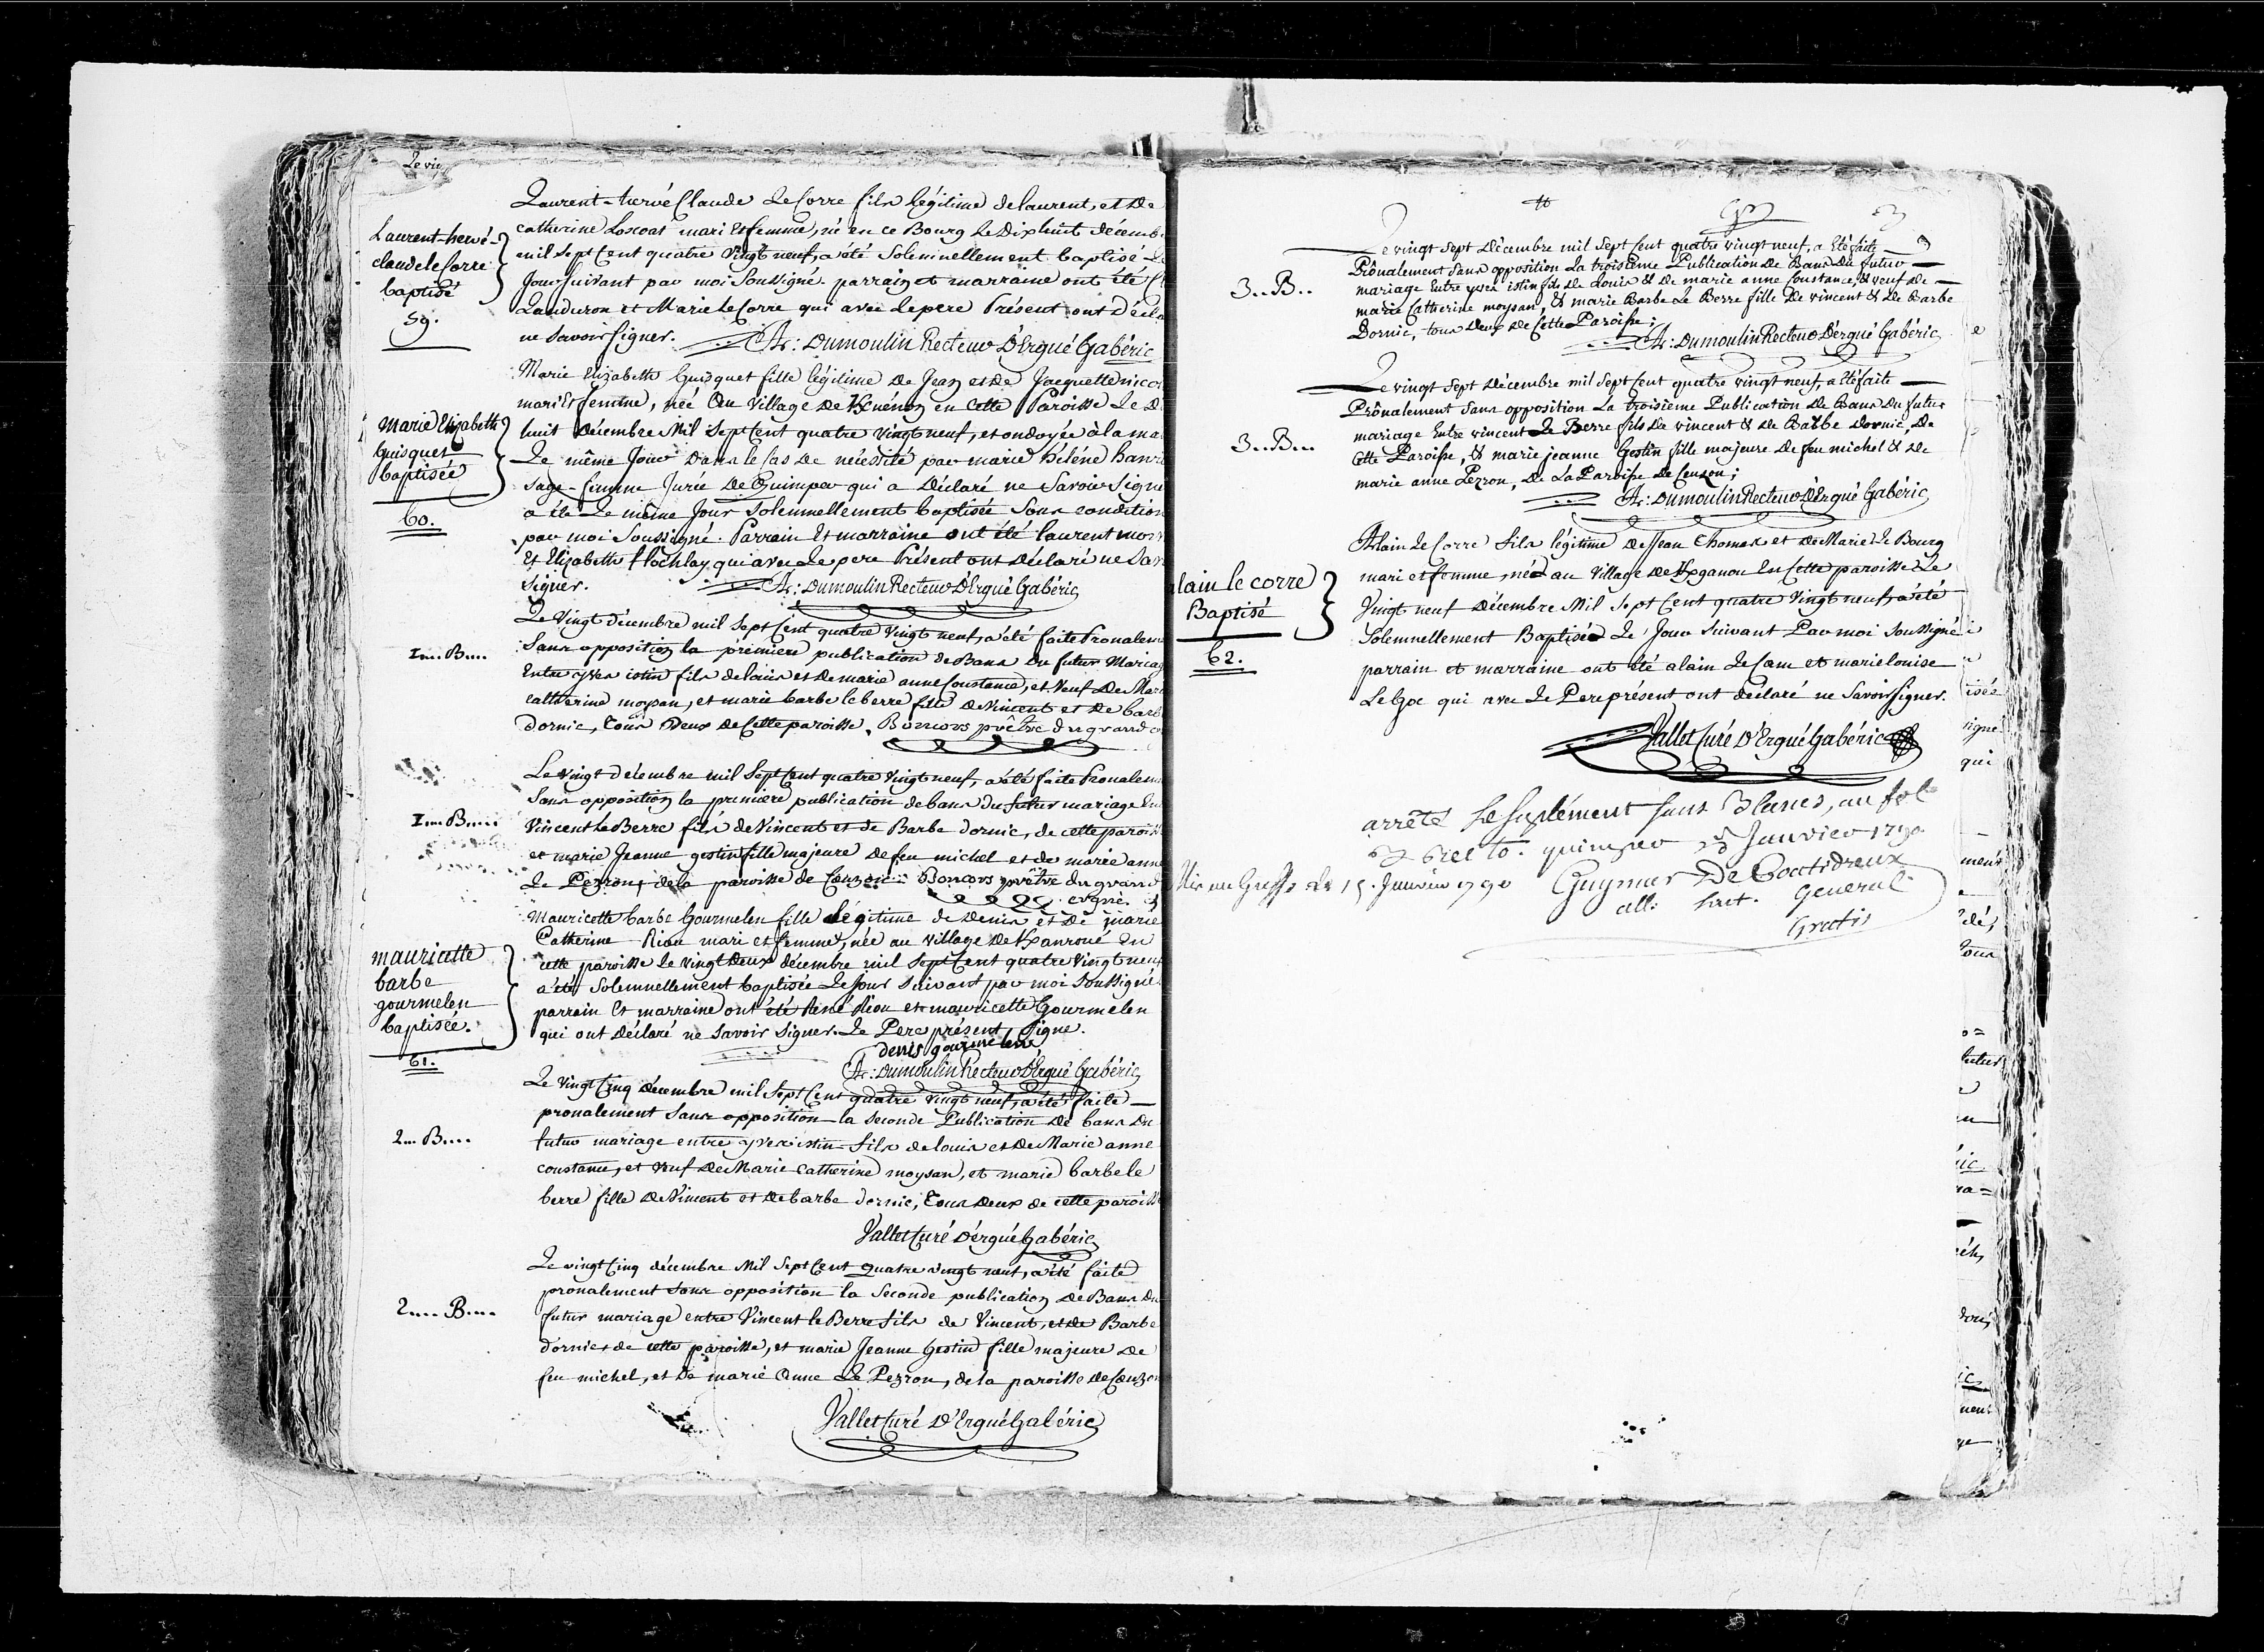 Le vin
Laurent-hervé Claude Le Corre fils légitime de laurent, et De
catherine Loscoat mari Et femme, né en ce Bourg Le Dix huit décemb
mil sept Cent quatre vingt neuf, a été Solemnellement baptisé Le
Jour suivant par moi Soussigné. parrain et marraine ont été
Landuron et Marie Le Corre qui avec Le pere Présent ont Décla
ne Savoir signer. Al: Dumoulin Recteur D'Ergué Gabéric
Laurent-hervé-
claude le Corre
baptisé
59.
Marie Elizabeth Guisquet fille légitime De Jean et De Jacquette nico
mari Et femme, née Au Village De Kxuénen en Cette Paroisse Le D
huit Décembre Mil Sept Cent quatre vingt neuf, et ondoyée à la ma
Le même Jour Dans le Cas De nécessité par marie hélène
Sage-femme Jurée De Quimper qui a Déclaré ne Savoir Signe
a été Le même Jour Solemnellement baptisée Sous condition
par moi Soussigné. Parrain Et marraine ont été laurent
Et Elizabeth Hochlay qui avec Le pere Présent ont Déclaré ne Sav
signer. Al: Dumoulin Recteur D'Ergué Gabéric
Marie Elizabeth
Guisquet
baptisée
60.
Le Vingt décembre mil Sept Cent quatre vingt neuf, a été faite Pronalem
Sans opposition la prémiere publication de Bans Du futur Mariag
Entre yves istin fils de louis et de marie anne Constance, et Veuf De Mari
catherine moysan, et marie barbe le berre fille De Vincent et De barb
dornic, tous Deux De Cette paroisse. Bonnors prêtre du grand
1... B....
Le vingt décembre mil Sept Cent quatre vingt neuf, a été faite Pronalem
Sans opposition la premiere publication de bans du futur mariage En
Vincent le Berre fils de Vincent et de Barbe dornic, de cette parois
et marie Jeanne gestin fille majeure de feu michel et de marie anne
Le Pezron, de la paroisse de Cuzon: Bonnors prêtre du grand
ergué.
1... B....
Mauricette barbe Gourmelen fille Légitime de Denis et De marie
Catherine Riou mari et femme, née au Village De Kxanroué En
cette paroisse Le vingt Deux décembre mil Sept Cent quatre Vingt neuf
a été Solemnellement baptisée Le Jour Suivant par moi Soussigné.
parrain Et marraine ont été René Riou et mauricette Gourmelen
qui ont Déclaré ne Savoir Signer. Le Pere présent, Signe.
denis gourmelen
Al: Dumoulin Recteur D'Ergué Gabéric
mauricette
barbe
gourmelen
baptisée.
61.
Le Vingt Cinq Décembre mil Sept Cent quatre vingt neuf, a été faite
pronalement Sans opposition la Seconde Publication De bans Du
futur mariage entre yves istin fils de louis et De Marie anne
constance, et veuf De Marie Catherine moysan, et marie barbe le
berre fille De Vincent et De barbe dornic, Tous Deux de cette paroisse
Vallet Curé D'ergué Gabéric
2... B....
Le vingt Cinq décembre Mil Sept Cent Quatre vingt neuf, a été faite
pronalement Sans opposition la Seconde publication De Bans Du
futur mariage entre Vincent le Berre fils de Vincent, et de Barbe
dornic, de cette paroisse, et marie Jeanne Gestin fille majeure De
feu michel, et De marie Anne Le Pezron, de la paroisse De Cuzon
Vallet Curé D'Ergué Gabéric
2.... B....
Le vingt sept Décembre mil Sept Cent quatre vingt neuf, a Eté faite
Prônalement Sans opposition La troisième Publication De Bans Du futur
mariage Entre yves istin fils De Louis & De marie anne Constance, & veuf De
marie Catherine moysan, & marie Barbe Le Berre fille De vincent & De Barbe
Dornic, tous Deux De Cette Paroisse;
Al: Dumoulin Recteur D'Ergué Gabéric
3.. B..
Le vingt sept Décembre mil Sept Cent quatre vingt neuf, a Eté faite
Prônalement Sans opposition La troisième Publication De Bans Du futur
mariage Entre vincent Le Berre fils De vincent & De Barbe Dornic, De
Cette Paroisse, & marie jeanne Gestin fille majeure De feu michel & De
marie anne Pezron, De La Paroisse De Cuzon;
Al: Dumoulin Recteur D'Ergué Gabéric
3.. B...
Alain Le Corre fils légitime De Jean Thomas et De Marie Le Bourg
mari et femme, né au Village De Kxganou En Cette paroisse Le
Vingt neuf Décembre Mil Sept Cent quatre Vingt neuf, a été
Solemnellement Baptisé Le Jour Suivant Par moi Soussigné
parrain et marraine ont été alain Le Cam et marie louise
Le Goc qui avec Le Pere présent ont déclaré ne Savoir signer.
Vallet Curé D'Ergué Gabéric
alain le corre
Baptisé
62.
arrêté Le Suplément sans Blancs, au fol
quimper Janvier 1790
Guymar De Coatidreux
all. Lieut. General
Gratis
Mis au Greffe le 15. Janvier 1790